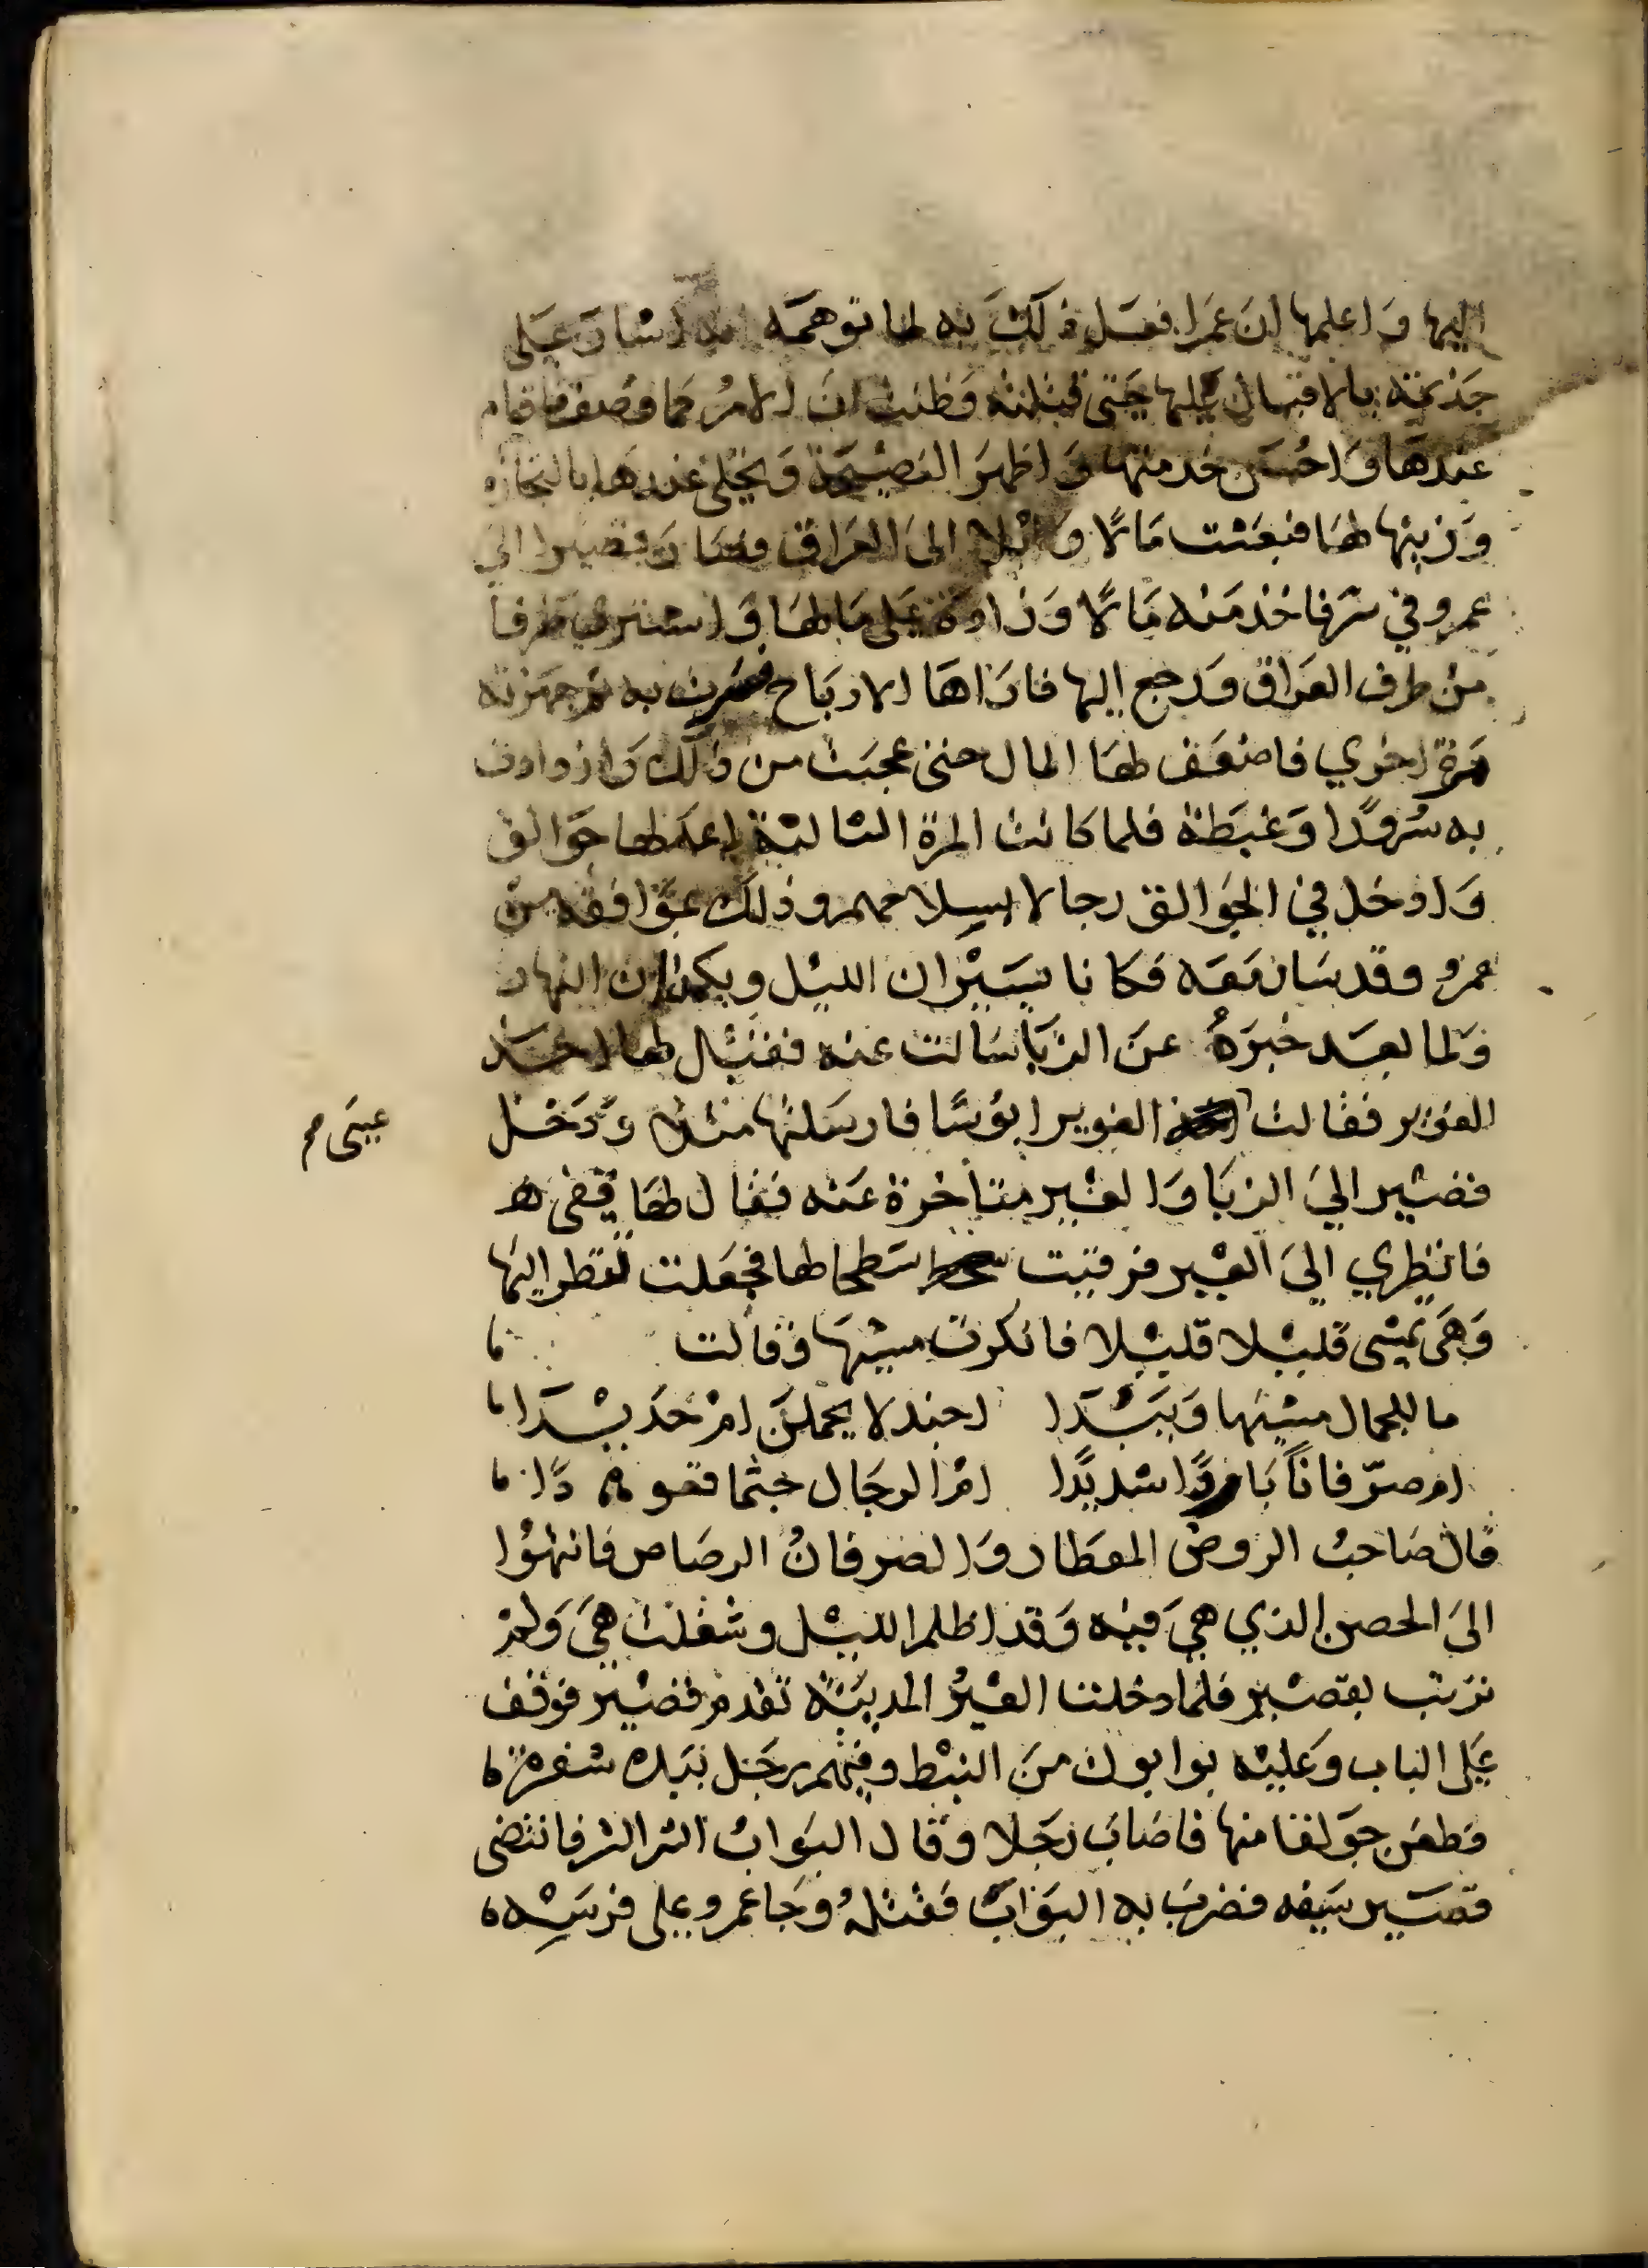 اليها واعلمها ان عمرا فعل ذلك به لما توهمه انه اشار على
جذيمة بالاقبال اليها حتى قتلته فظنت ان الامر كما وصف فاقام
عندها واحسن خدمتها واظهر النصيحة وتحلى عندها بالتجارة
وزينها لها فبعثت مالا وابلا الى العراق فسار قصير الى
عمرو في سر فاخذ منه مالا وزاده على مالها واشترى طرفا
من طرف العراق ورجع اليها فاراها الارباح فسرت به ثم جهزته
مرة اخري فاضعف لها المال حتى عجبت من ذلك وازدادت
به سرورا وغبطة فلما كانت المرة الثالثة اعد لها جوالق
وادخل في الجوالق رجالا بسلاحهم وذلك بموافقة من
عمرو وقد سار معه فكانا يسيران الليل ويكمنان النهار
ولما بعد خبره عن الزبا سالت عنه فقيل لها اخذ
الغوير فقالت الغوير ابؤسا فارسلتها مثلا ودخل
عسى صح
قصير الي الزبا والعير متاخرة عنه فقال لها قفى
فانظري الي العير فرقيت سطحا لها فجعلت تنظر اليها
وهى تمشى قليلا قليلا فانكرت مشيها وقالت
ما للجمال مشيها وئيدا اجندلا يحملن ام حديدا
ام صرفانا باردا شديدا ام الرجال جثما قعودا
قال صاحب الروض المعطار والصرفان الرصاص فانتهوا
الى الحصن الذي هي فيه وقد اظلم الليل وشغلت هي ولم
ترتب بقصير فلما دخلت العير المدينة تقدم قصير فوقف
على الباب وعليه بوابون من النبط وفيهم رجل بيده شفرة
فطعن جولقا منها فاصاب رجلا وقال البواب الشر الشر فانتضى
قصير سيفه فضرب به البواب فقتله وجا عمرو على فرسه